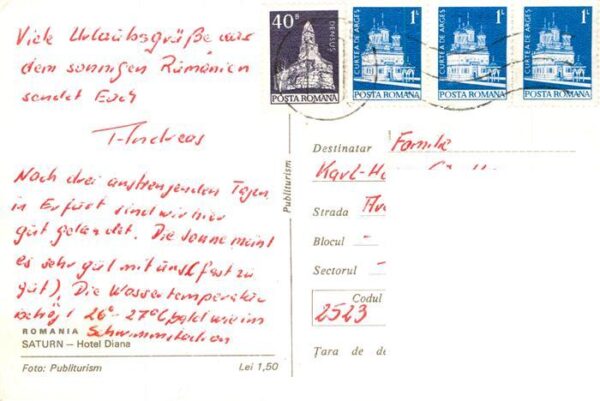 Viele Urlaubsgrüße aus
dem sonnigen Rumänien
sendet Euch
Andreas
Nach drei anstrengenden Tagen
in Erfurt sind wir hier
gut gelandet. Die Sonne meint
es sehr gut mit uns (fast zu
gut). Die Wassertemperatur
26°-27°C, bald wie im
Schwimmstadion
ROMANIA
SATURN – Hotel Diana
Foto: Publiturism
Lei 1,50
Publiturism
40 B
DENSUS
POSTA ROMANA
1 L
CURTEA DE ARGES
POSTA ROMANA
1 L
CURTEA DE ARGES
POSTA ROMANA
1 L
CURTEA DE ARGES
POSTA ROMANA
Destinatar Familie
Karl-
Strada
Blocul -
Sectorul -
Codul
2523
Țara de de